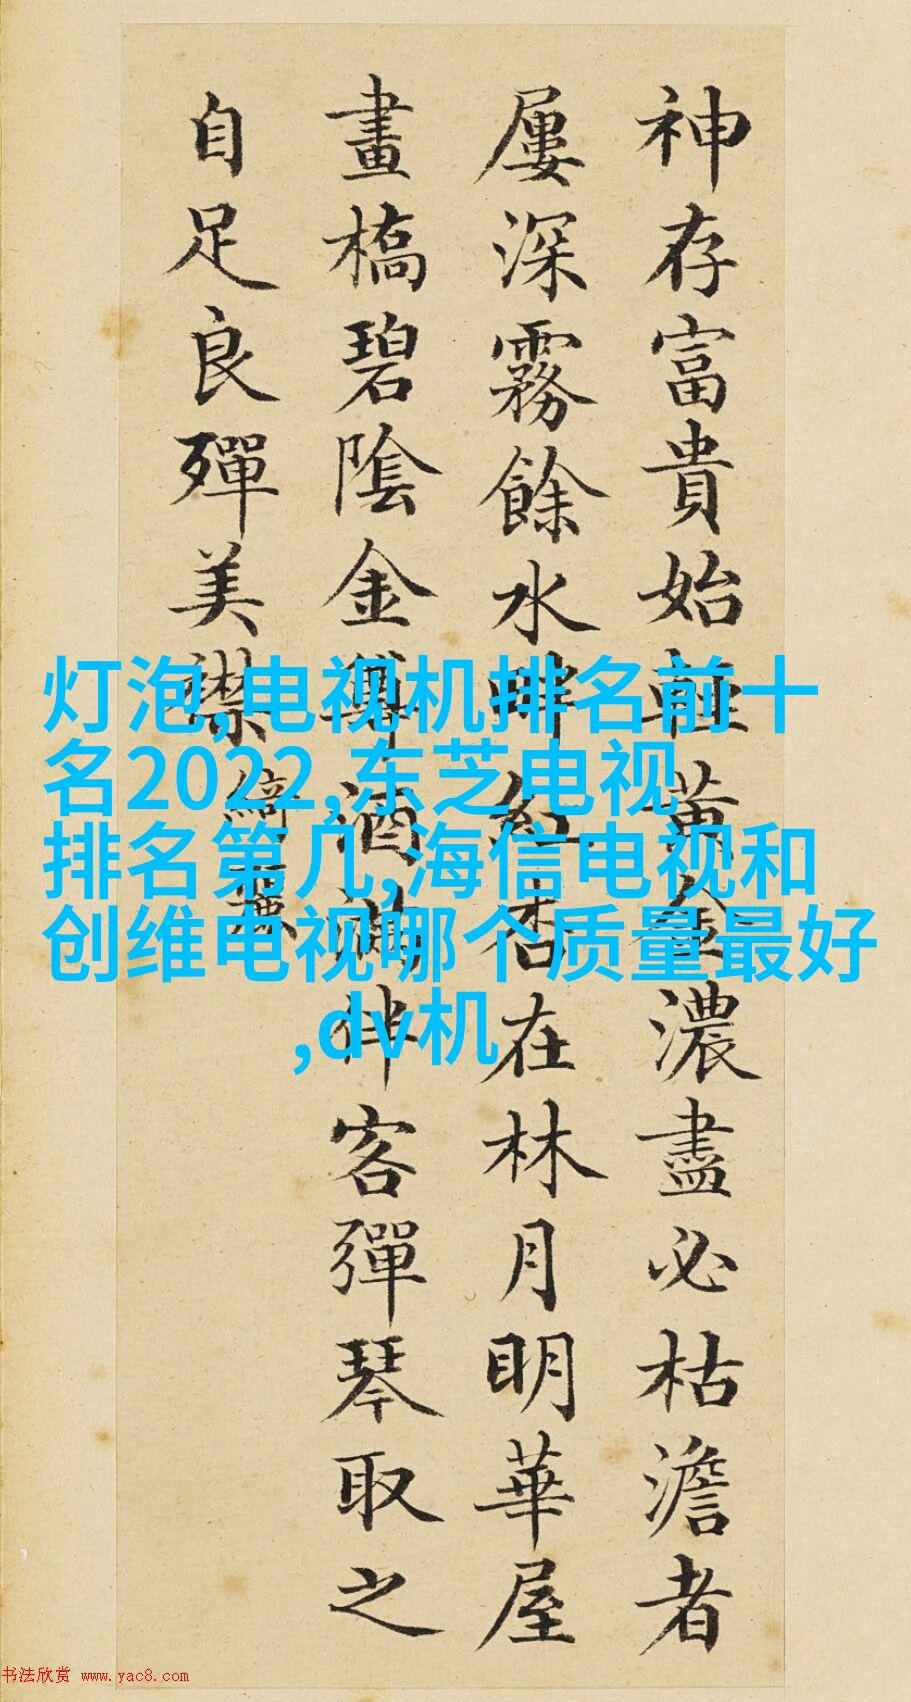 神存富貴始輕黃金濃盡必枯澹者
屢深霧餘水畔紅杏在林月明華屋
畫橋碧陰金酒滿伴客彈琴取之
自足良殫美襟
綺麗
灯泡,电视机排名前十
名2022,东芝电视
排名第几,海信电视和
创维电视哪个质量最好
,dv机
书法欣赏 www.yac8.com